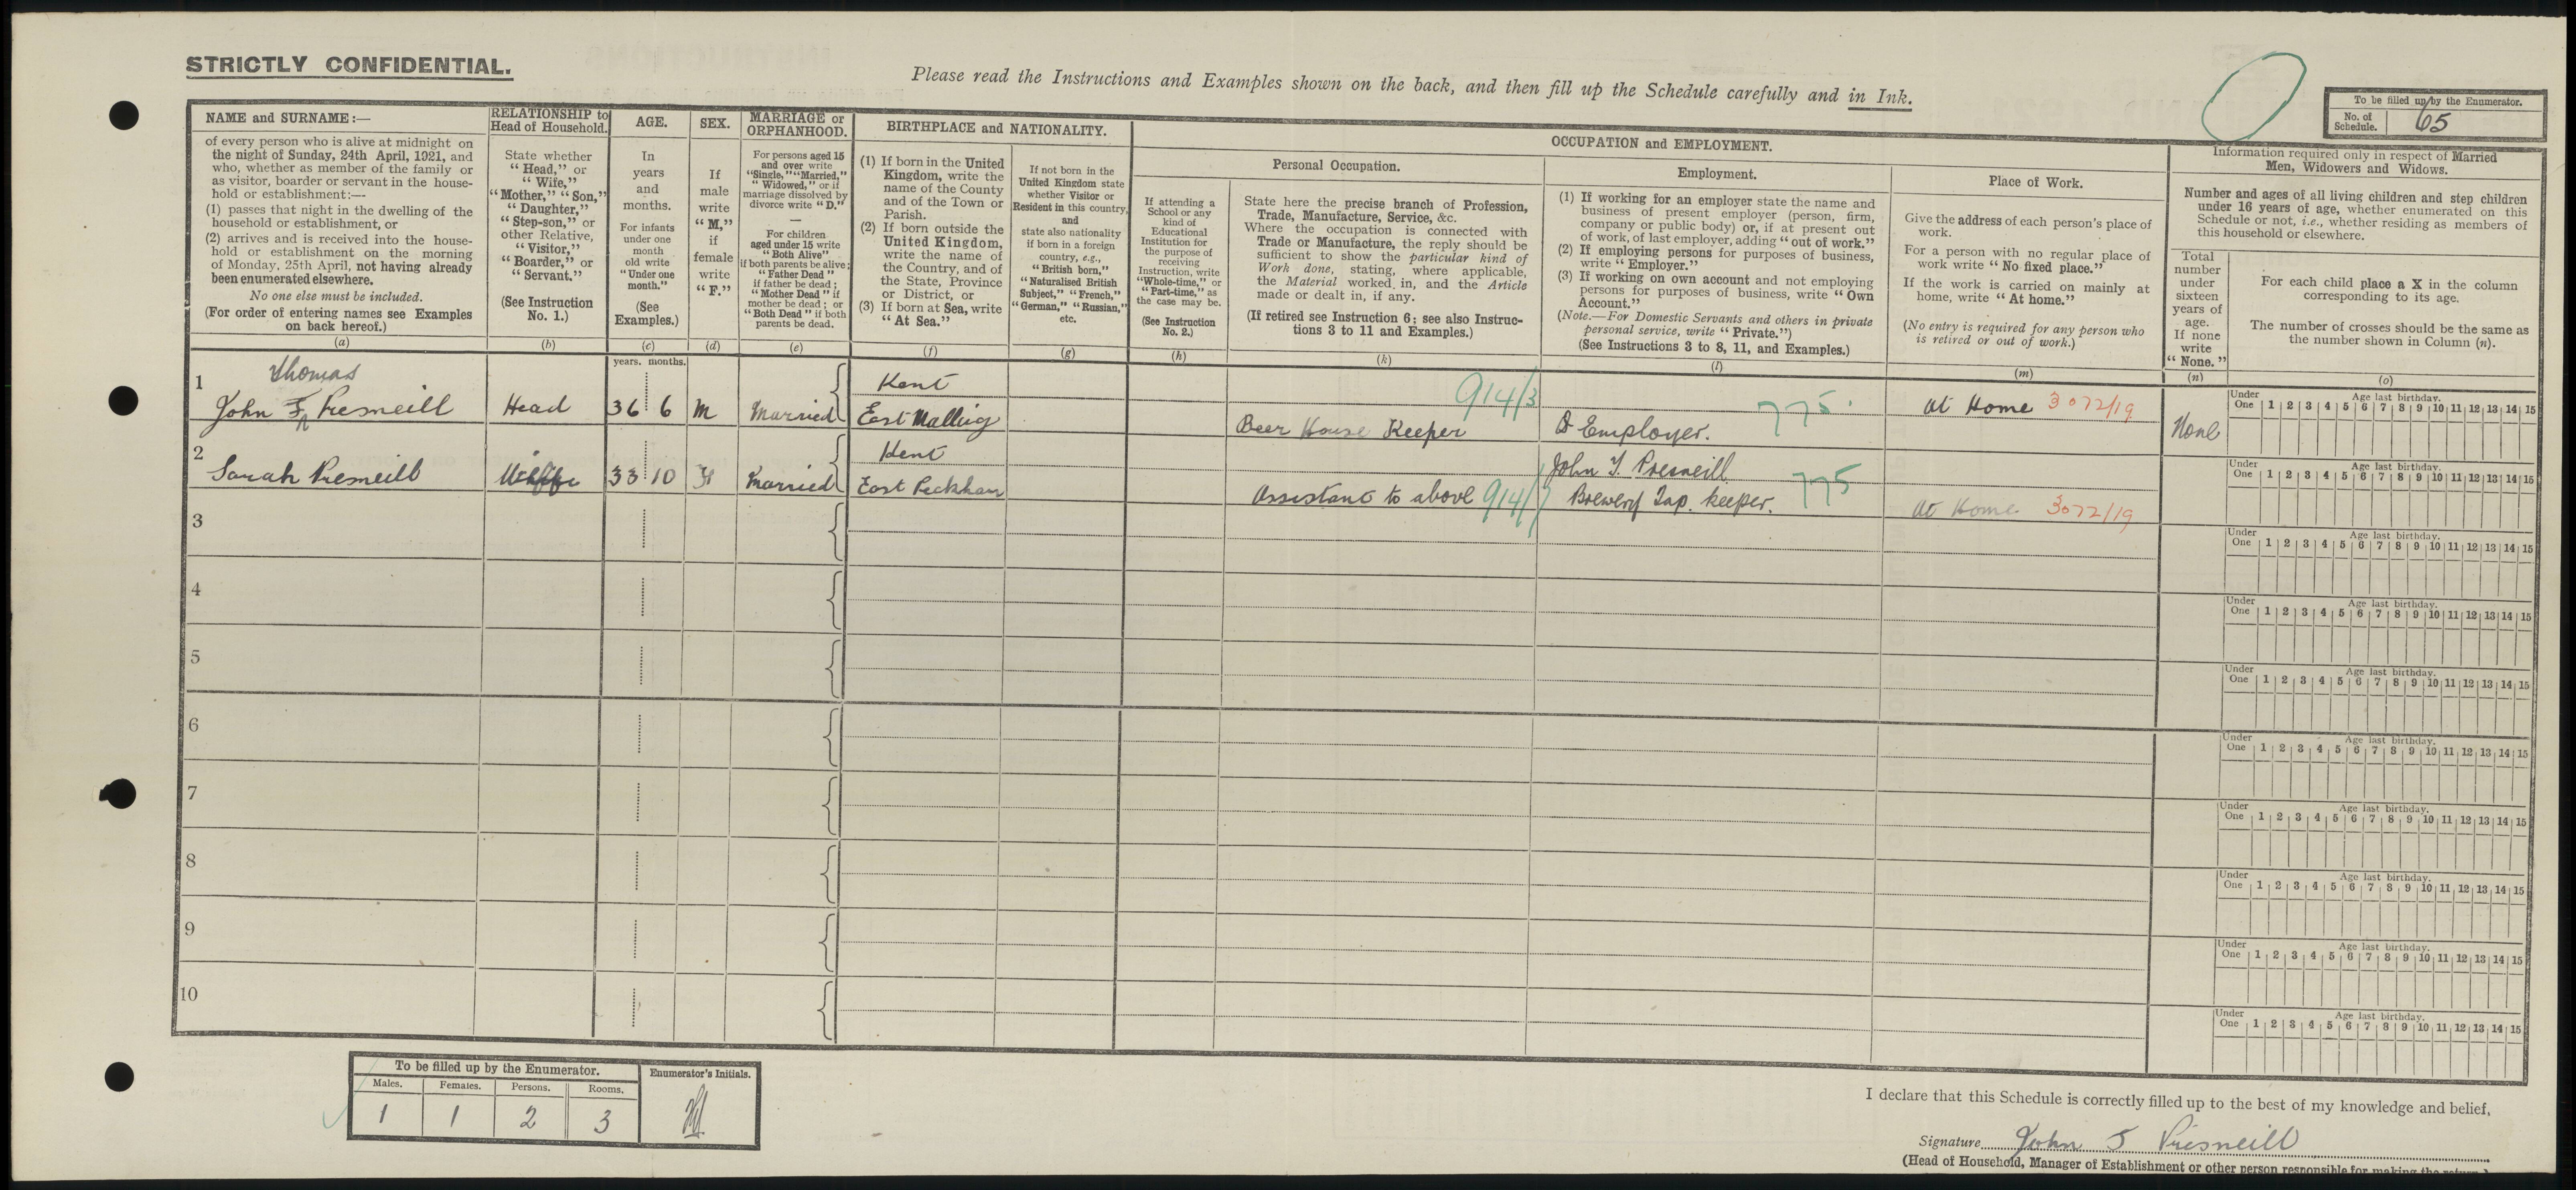 STRICTLY CONFIDENTIAL.
Please read the Instructions and Examples shown on the back, and then fill up the Schedule carefully and in Ink.
To be filled up by the Enumerator.
No. of Schedule. 65
NAME and SURNAME:—
of every person who is alive at midnight on
the night of Sunday, 24th April, 1921, and
who, whether as member of the family or
as visitor, boarder or servant in the house-
hold or establishment:—
(1) passes that night in the dwelling of the
household or establishment, or
(2) arrives and is received into the house-
hold or establishment on the morning
of Monday, 25th April, not having already
been enumerated elsewhere.
No one else must be included.
(For order of entering names see Examples
on back hereof.)
(a)
RELATIONSHIP to
Head of Household.
State whether
"Head," or
"Wife,"
"Mother," "Son,"
"Daughter,"
"Step-son," or
other Relative,
"Visitor,"
"Boarder," or
"Servant."
(See Instruction
No. 1.)
(b)
AGE.
In
years
and
months.
For infants
under one
month
old write
"Under one
month."
(See
Examples.)
(c)
SEX.
If
male
write
"M,"
if
female
write
"F."
(d)
MARRIAGE or
ORPHANHOOD.
For persons aged 15
and over write
"Single," "Married,"
"Widowed," or if
marriage dissolved by
divorce write "D."
—
For children
aged under 15 write
"Both Alive"
if both parents be alive;
"Father Dead"
if father be dead;
"Mother Dead" if
mother be dead; or
"Both Dead" if both
parents be dead.
(e)
BIRTHPLACE and NATIONALITY.
(1) If born in the United
Kingdom, write the
name of the County
and of the Town or
Parish.
(2) If born outside the
United Kingdom,
write the name of
the Country, and of
the State, Province
or District, or
(3) If born at Sea, write
"At Sea."
(f)
If not born in the
United Kingdom state
whether Visitor or
Resident in this country,
and
state also nationality
if born in a foreign
country, e.g.,
"British born,"
"Naturalised British
Subject," "French,"
"German," "Russian,"
etc.
(g)
OCCUPATION and EMPLOYMENT.
Personal Occupation.
If attending a
School or any
kind of
Educational
Institution for
the purpose of
receiving
Instruction, write
"Whole-time," or
"Part-time," as
the case may be.
(See Instruction
No. 2.)
(h)
State here the precise branch of Profession,
Trade, Manufacture, Service, &c.
Where the occupation is connected with
Trade or Manufacture, the reply should be
sufficient to show the particular kind of
Work done, stating, where applicable,
the Material worked in, and the Article
made or dealt in, if any.
(If retired see Instruction 6; see also Instruc-
tions 3 to 11 and Examples.)
(k)
Employment.
(1) If working for an employer state the name and
business of present employer (person, firm,
company or public body) or, if at present out
of work, of last employer, adding "out of work."
(2) If employing persons for purposes of business,
write "Employer."
(3) If working on own account and not employing
persons for purposes of business, write "Own
Account."
(Note.—For Domestic Servants and others in private
personal service, write "Private.")
(See Instructions 3 to 8, 11, and Examples.)
(l)
Place of Work.
Give the address of each person's place of
work.
For a person with no regular place of
work write "No fixed place."
If the work is carried on mainly at
home, write "At home."
(No entry is required for any person who
is retired or out of work.)
(m)
Information required only in respect of Married
Men, Widowers and Widows.
Number and ages of all living children and step children
under 16 years of age, whether enumerated on this
Schedule or not, i.e., whether residing as members of
this household or elsewhere.
Total
number
under
sixteen
years of
age.
If none
write
"None."
(n)
For each child place a X in the column
corresponding to its age.
The number of crosses should be the same as
the number shown in Column (n).
(o)
years. months.
1
Thomas
John T Presneill Head 36 6 M Married Kent
East Malling Beer House Keeper 914/3 Employer. 775 At Home 3072/19 None
Under One Age last birthday. 1 2 3 4 5 6 7 8 9 10 11 12 13 14 15
2
Sarah Presneill Wife 33 10 F Married Kent
East Peckham Assistant to above 914/7 John T. Presneill
Brewery Tap keeper. 775 At Home 3072/19
Under One Age last birthday. 1 2 3 4 5 6 7 8 9 10 11 12 13 14 15
3
Under One Age last birthday. 1 2 3 4 5 6 7 8 9 10 11 12 13 14 15
4
Under One Age last birthday. 1 2 3 4 5 6 7 8 9 10 11 12 13 14 15
5
Under One Age last birthday. 1 2 3 4 5 6 7 8 9 10 11 12 13 14 15
6
Under One Age last birthday. 1 2 3 4 5 6 7 8 9 10 11 12 13 14 15
7
Under One Age last birthday. 1 2 3 4 5 6 7 8 9 10 11 12 13 14 15
8
Under One Age last birthday. 1 2 3 4 5 6 7 8 9 10 11 12 13 14 15
9
Under One Age last birthday. 1 2 3 4 5 6 7 8 9 10 11 12 13 14 15
10
Under One Age last birthday. 1 2 3 4 5 6 7 8 9 10 11 12 13 14 15
To be filled up by the Enumerator.
Males. Females. Persons. Rooms.
1 1 2 3
Enumerator's Initials.
I declare that this Schedule is correctly filled up to the best of my knowledge and belief,
Signature John T Presneill
(Head of Household, Manager of Establishment or other person responsible for making the return.)